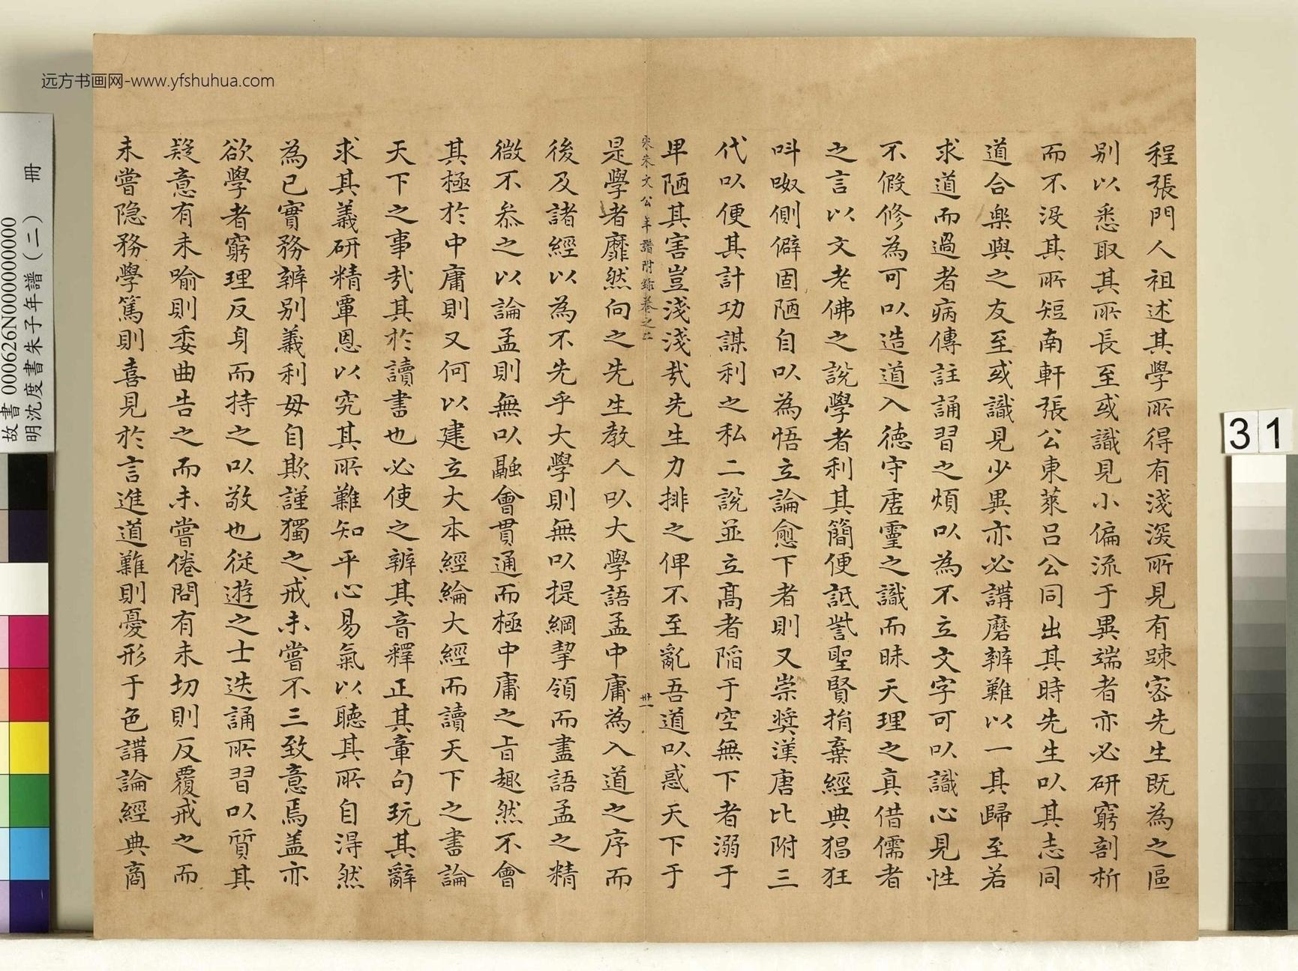 远方书画网-www.yfshuhua.com
程張門人祖述其學所得有淺深所見有踈密先生既為之區
别以悉取其所長至或識見小偏流于異端者亦必研窮剖析
而不没其所短南軒張公東萊吕公同出其時先生以其志同
道合樂與之友至或識見少異亦必講磨辨難以一其歸至若
求道而過者病傳註誦習之煩以為不立文字可以識心見性
不假修為可以造道入德守虚靈之識而昧天理之真借儒者
之言以文老佛之說學者利其簡便詆訾聖賢捐棄經典猖狂
叫呶側僻固陋自以為悟立論愈下者則又崇奬漢唐比附三
代以便其計功謀利之私二說並立髙者陷于空無下者溺于
卑陋其害豈淺淺哉先生力排之俾不至亂吾道以惑天下于
宋朱文公年譜附錄卷之二
卅一
是學者靡然向之先生教人以大學語孟中庸為入道之序而
後及諸經以為不先乎大學則無以提綱挈領而盡語孟之精
微不叅之以論孟則無以融會貫通而極中庸之旨趣然不會
其極於中庸則又何以建立大本經綸大經而讀天下之書論
天下之事哉其於讀書也必使之辨其音釋正其章句玩其辭
求其義研精覃思以究其所難知平心易氣以聽其所自得然
為已實務辨别義利毋自欺謹獨之戒未嘗不三致意焉盖亦
欲學者窮理反身而持之以敬也從遊之士迭誦所習以質其
疑意有未喻則委曲告之而未嘗倦問有未切則反覆戒之而
未嘗隐務學篤則喜見於言進道難則憂形于色講論經典商
冊
故書 000626N000000000
明沈度書朱子年譜(二)
31